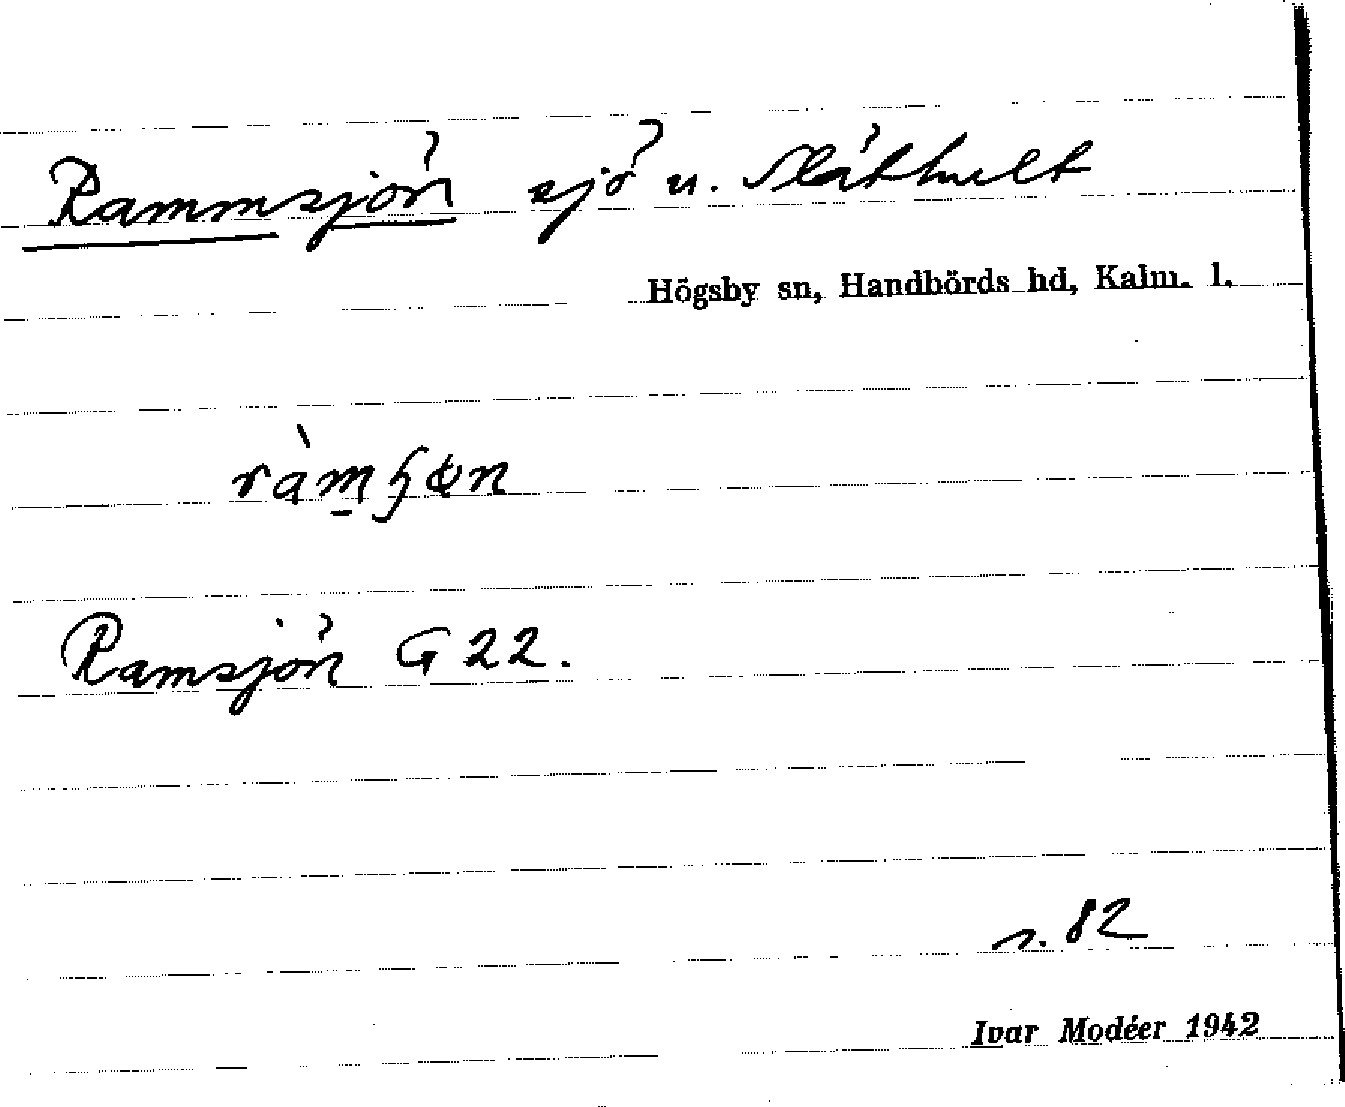 Rammsjön sjö u. Slåthult
Högsby sn, Handbörds hd, Kalm. l.
Ramsjön G 22.
s. 82
Ivar Modéer 1942